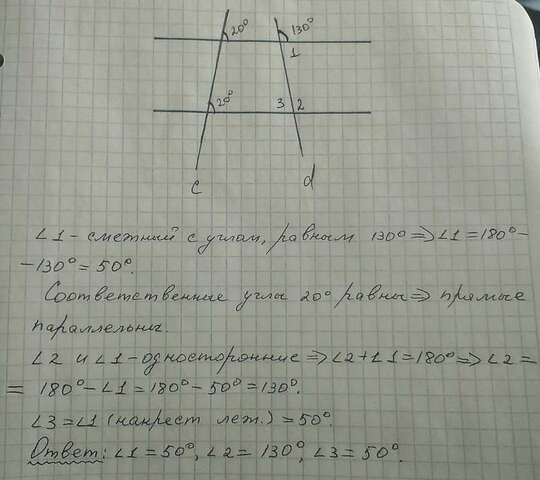 20° 130°
1
20° 3 2
c d
∠1 - смежный с углом, равным 130° ⇒ ∠1 = 180° -
- 130° = 50°.
Соответственные углы 20° равны ⇒ прямые
параллельны.
∠2 и ∠1 - односторонние ⇒ ∠2 + ∠1 = 180° ⇒ ∠2 =
= 180° - ∠1 = 180° - 50° = 130°.
∠3 = ∠1 (накрест леж.) = 50°.
Ответ: ∠1 = 50°, ∠2 = 130°, ∠3 = 50°.